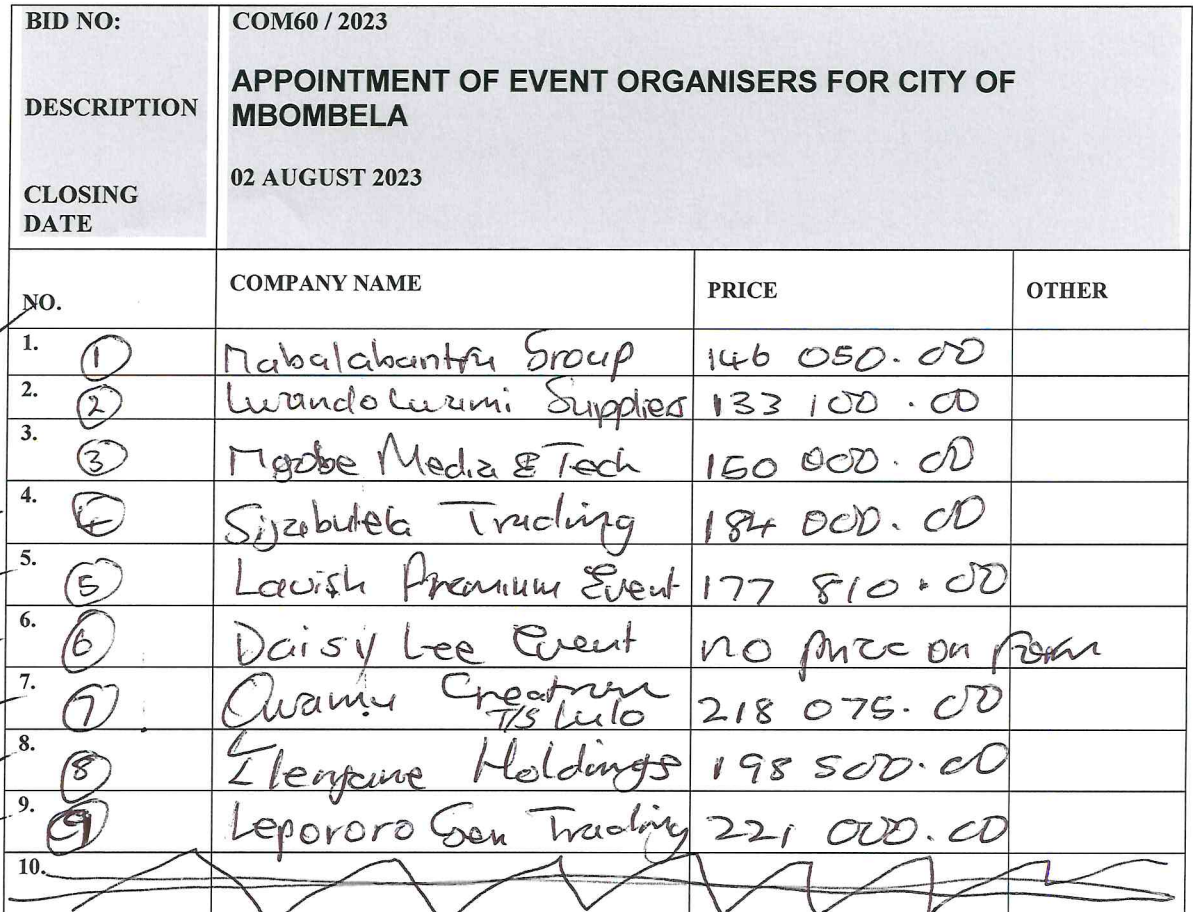 BID NO: COM60 / 2023
DESCRIPTION APPOINTMENT OF EVENT ORGANISERS FOR CITY OF
MBOMBELA
CLOSING DATE 02 AUGUST 2023
NO. COMPANY NAME PRICE OTHER
1. 1 Mabalabantfu Group 146 050.00
2. 2 Suppliers 133 100.00
3. 3 Mgobe Media & Tech 150 000.00
4. 4 Sijabulela Trading 184 000.00
5. 5 Lavish Premium Event 177 810.00
6. 6 Daisy Lee Event no price on form
7. 7 218 075.00
8. 8 Holdings 198 500.00
9. 9 Lepororo Gen Trading 221 000.00
10.